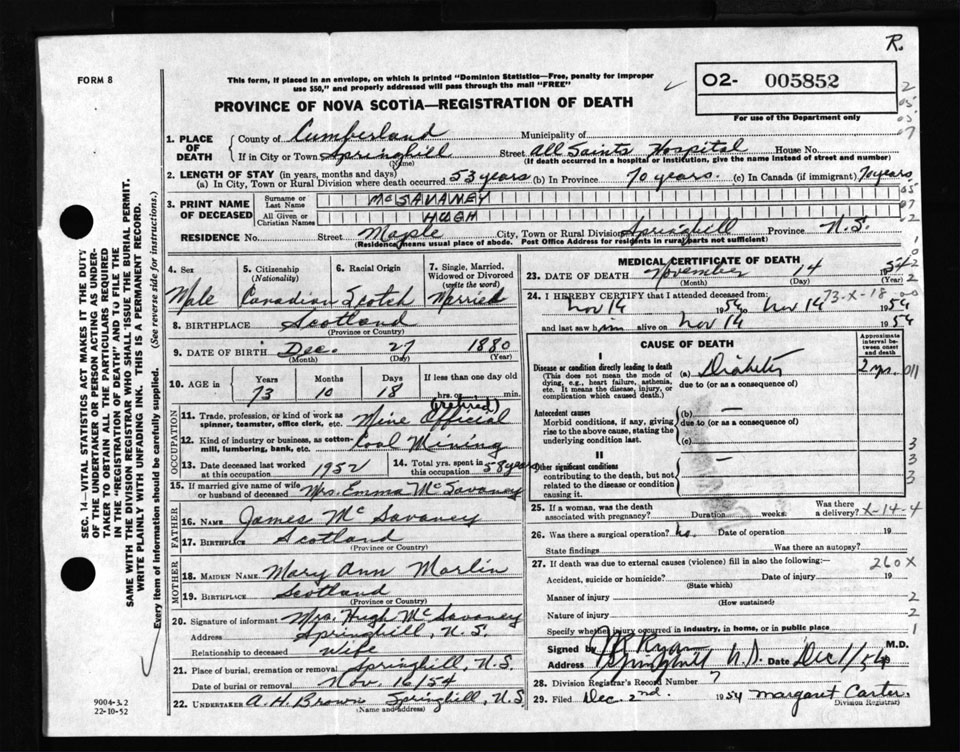 R.
FORM 8
This form, if placed in an envelope, on which is printed "Dominion Statistics—Free, penalty for improper
use $50," and properly addressed will pass through the mail "FREE"
PROVINCE OF NOVA SCOTIA—REGISTRATION OF DEATH
O2- 005852
For use of the Department only
SEC. 14—VITAL STATISTICS ACT MAKES IT THE DUTY
OF THE UNDERTAKER OR PERSON ACTING AS UNDER-
TAKER TO OBTAIN ALL THE PARTICULARS REQUIRED
IN THE "REGISTRATION OF DEATH" AND TO FILE THE
SAME WITH THE DIVISION REGISTRAR WHO SHALL ISSUE THE BURIAL PERMIT.
WRITE PLAINLY WITH UNFADING INK. THIS IS A PERMANENT RECORD.
Every item of information should be carefully supplied. (See reverse side for instructions.)
1. PLACE OF DEATH
County of Cumberland Municipality of
If in City or Town Springhill Street All Saints Hospital House No.
(Name) (If death occurred in a hospital or institution, give the name instead of street and number)
2. LENGTH OF STAY (in years, months and days)
(a) In City, Town or Rural Division where death occurred 53 years (b) In Province 70 years. (c) In Canada (if immigrant) 70 years
3. PRINT NAME OF DECEASED
Surname or Last Name McSAVANEY
All Given or Christian Names HUGH
RESIDENCE No. Street Maple City, Town or Rural Division Springhill Province N.S.
(Residence means usual place of abode. Post Office Address for residents in rural parts not sufficient)
4. Sex Male
5. Citizenship (Nationality) Canadian
6. Racial Origin Scotch
7. Single, Married, Widowed or Divorced (write the word) Married
8. BIRTHPLACE Scotland
(Province or Country)
9. DATE OF BIRTH Dec. 27 1880
(Month) (Day) (Year)
10. AGE in Years 73 Months 10 Days 18 If less than one day old hrs. or min.
OCCUPATION
11. Trade, profession, or kind of work as spinner, teamster, office clerk, etc. Mine Official (retired)
12. Kind of industry or business, as cotton-mill, lumbering, bank, etc. Coal Mining
13. Date deceased last worked at this occupation 1952
14. Total yrs. spent in this occupation 58 years
15. If married give name of wife or husband of deceased Mrs. Emma McSavaney
FATHER
16. NAME James McSavaney
17. BIRTHPLACE Scotland
(Province or Country)
MOTHER
18. MAIDEN NAME Mary Ann Marlin
19. BIRTHPLACE Scotland
(Province or Country)
20. Signature of informant Mrs. Hugh McSavaney
Address Springhill, N.S.
Relationship to deceased Wife
21. Place of burial, cremation or removal Springhill, N.S.
Date of burial or removal Nov. 16/54
22. UNDERTAKER A. H. Brown Springhill, N.S.
(Name and address)
9004-3.2
22-10-52
MEDICAL CERTIFICATE OF DEATH
23. DATE OF DEATH November 14 1954
(Month) (Day) (Year)
73-X-18
24. I HEREBY CERTIFY that I attended deceased from:
Nov 14 1954 to Nov 14 1954
and last saw him alive on Nov 14 1954
CAUSE OF DEATH
Approximate interval between onset and death
I
Disease or condition directly leading to death
(This does not mean the mode of dying, e.g., heart failure, asthenia, etc. It means the disease, injury, or complication which caused death.)
(a) Diabetes 2 yrs. 011
due to (or as a consequence of)
Antecedent causes
Morbid conditions, if any, giving rise to the above cause, stating the underlying condition last.
(b) —
due to (or as a consequence of)
(c)
II
Other significant conditions
contributing to the death, but not related to the disease or condition causing it.
—
25. If a woman, was the death associated with pregnancy? Duration weeks: Was there a delivery?
X-14-4
26. Was there a surgical operation? No. Date of operation 19
State findings Was there an autopsy?
27. If death was due to external causes (violence) fill in also the following:—
260X
Accident, suicide or homicide? Date of injury 19
(State which)
Manner of injury
(How sustained)
Nature of injury
Specify whether injury occurred in industry, in home, or in public place
Signed by Ryan M.D.
Address Springhill N.S. Date Dec 1/54
28. Division Registrar's Record Number 7
29. Filed Dec. 2nd 1954 Margaret Carter
Division Registrar